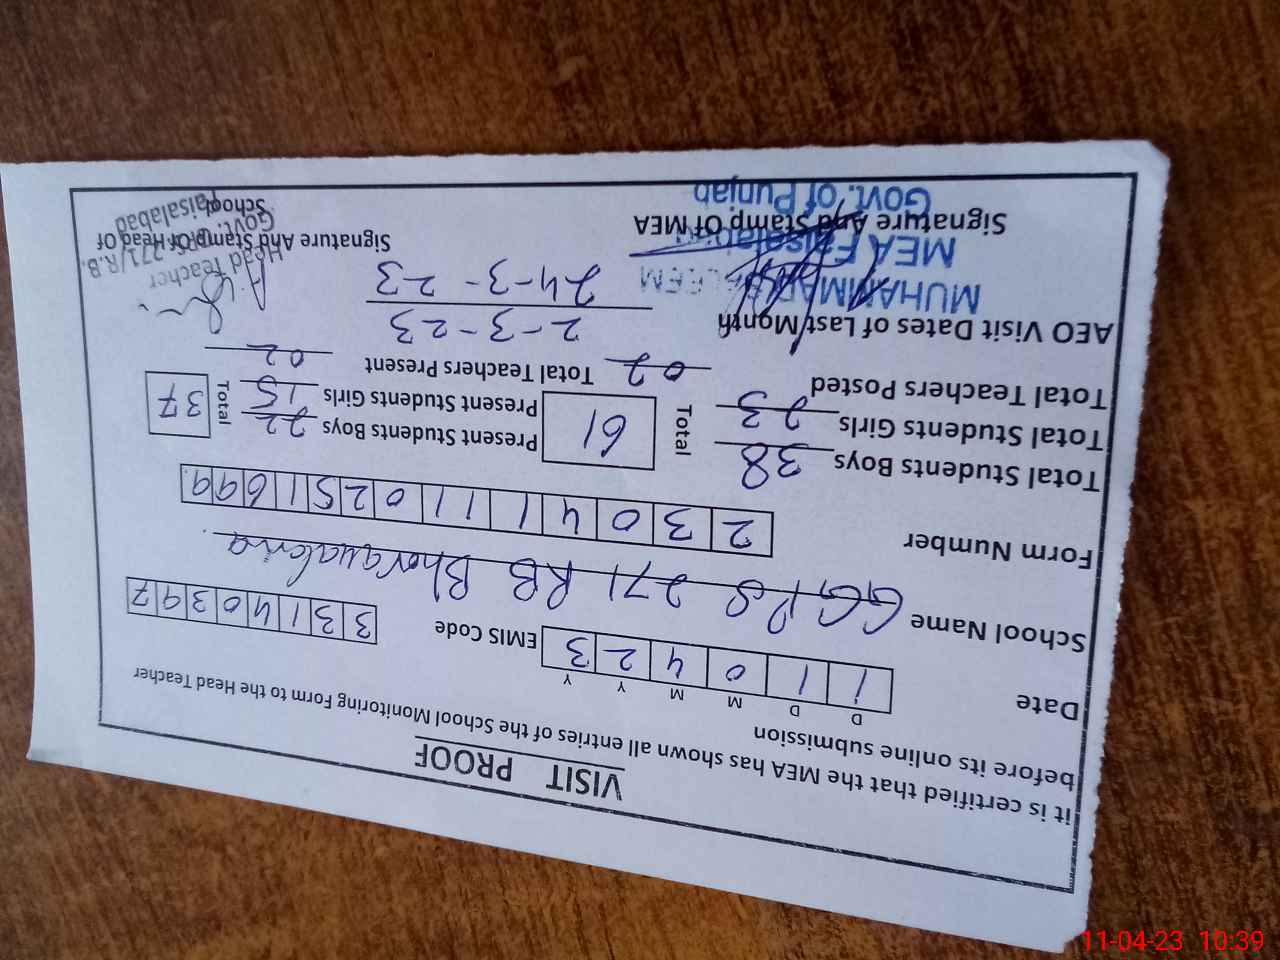 VISIT PROOF
It is certified that the MEA has shown all entries of the School Monitoring Form to the Head Teacher
before its online submission
D D M M Y Y
Date 1 1 0 4 2 3 EMIS Code 3 3 1 4 0 3 9 7
School Name GGPS 271 RB Bhorqualona
Form Number 2 3 0 4 1 1 1 0 2 5 1 6 9 9
Total Students Boys 38 Total 61 Present Students Boys 22 Total 37
Total Students Girls 23 Present Students Girls 15
Total Teachers Posted 02 Total Teachers Present 02
AEO Visit Dates of Last Month 2-3-23
24-3-23
MUHAMMAD
MEA Faisalabad
Govt. of Punjab
Signature And Stamp Of MEA
Head Teacher
Govt. 271/R.B.
Faisalabad
Signature And Stamp Of Head Of
School
11-04-23 10:39